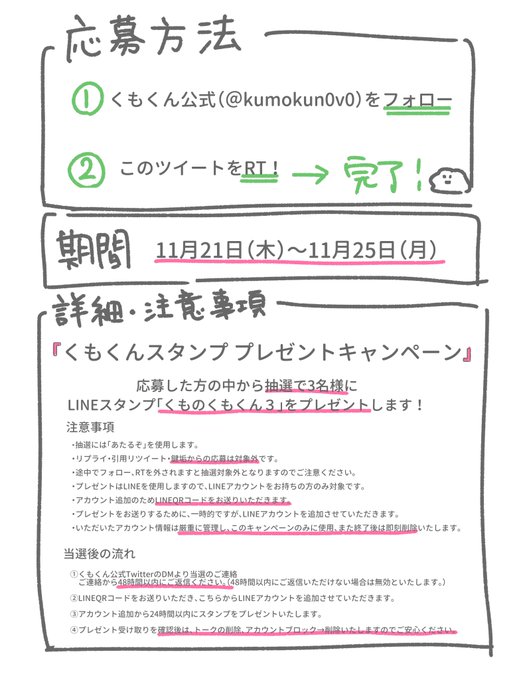 応募方法
① くもくん公式(@kumokun0v0)をフォロー
② このツイートをRT! → 完了!
期間 11月21日(木)〜11月25日(月)
詳細・注意事項
『くもくんスタンプ プレゼントキャンペーン』
応募した方の中から抽選で3名様に
LINEスタンプ「くものくもくん３」をプレゼントします!
注意事項
・抽選には「あたるぞ」を使用します。
・リプライ・引用リツイート・鍵垢からの応募は対象外です。
・途中でフォロー、RTを外されますと抽選対象外となりますのでご注意ください。
・プレゼントはLINEを使用しますので、LINEアカウントをお持ちの方のみ対象です。
・アカウント追加のためLINEQRコードをお送りいただきます。
・プレゼントをお送りするために、一時的ですが、LINEアカウントを追加させていただきます。
・いただいたアカウント情報は厳重に管理し、このキャンペーンのみに使用、また終了後は即刻削除いたします。
当選後の流れ
①くもくん公式TwitterのDMより当選のご連絡
ご連絡から48時間以内にご返信ください。(48時間以内にご返信いただけない場合は無効といたします。)
②LINEQRコードをお送りいただき、こちらからLINEアカウントを追加させていただきます。
③アカウント追加から24時間以内にスタンプをプレゼントいたします。
④プレゼント受け取りを確認後は、トークの削除、アカウントブロック→削除いたしますのでご安心ください。